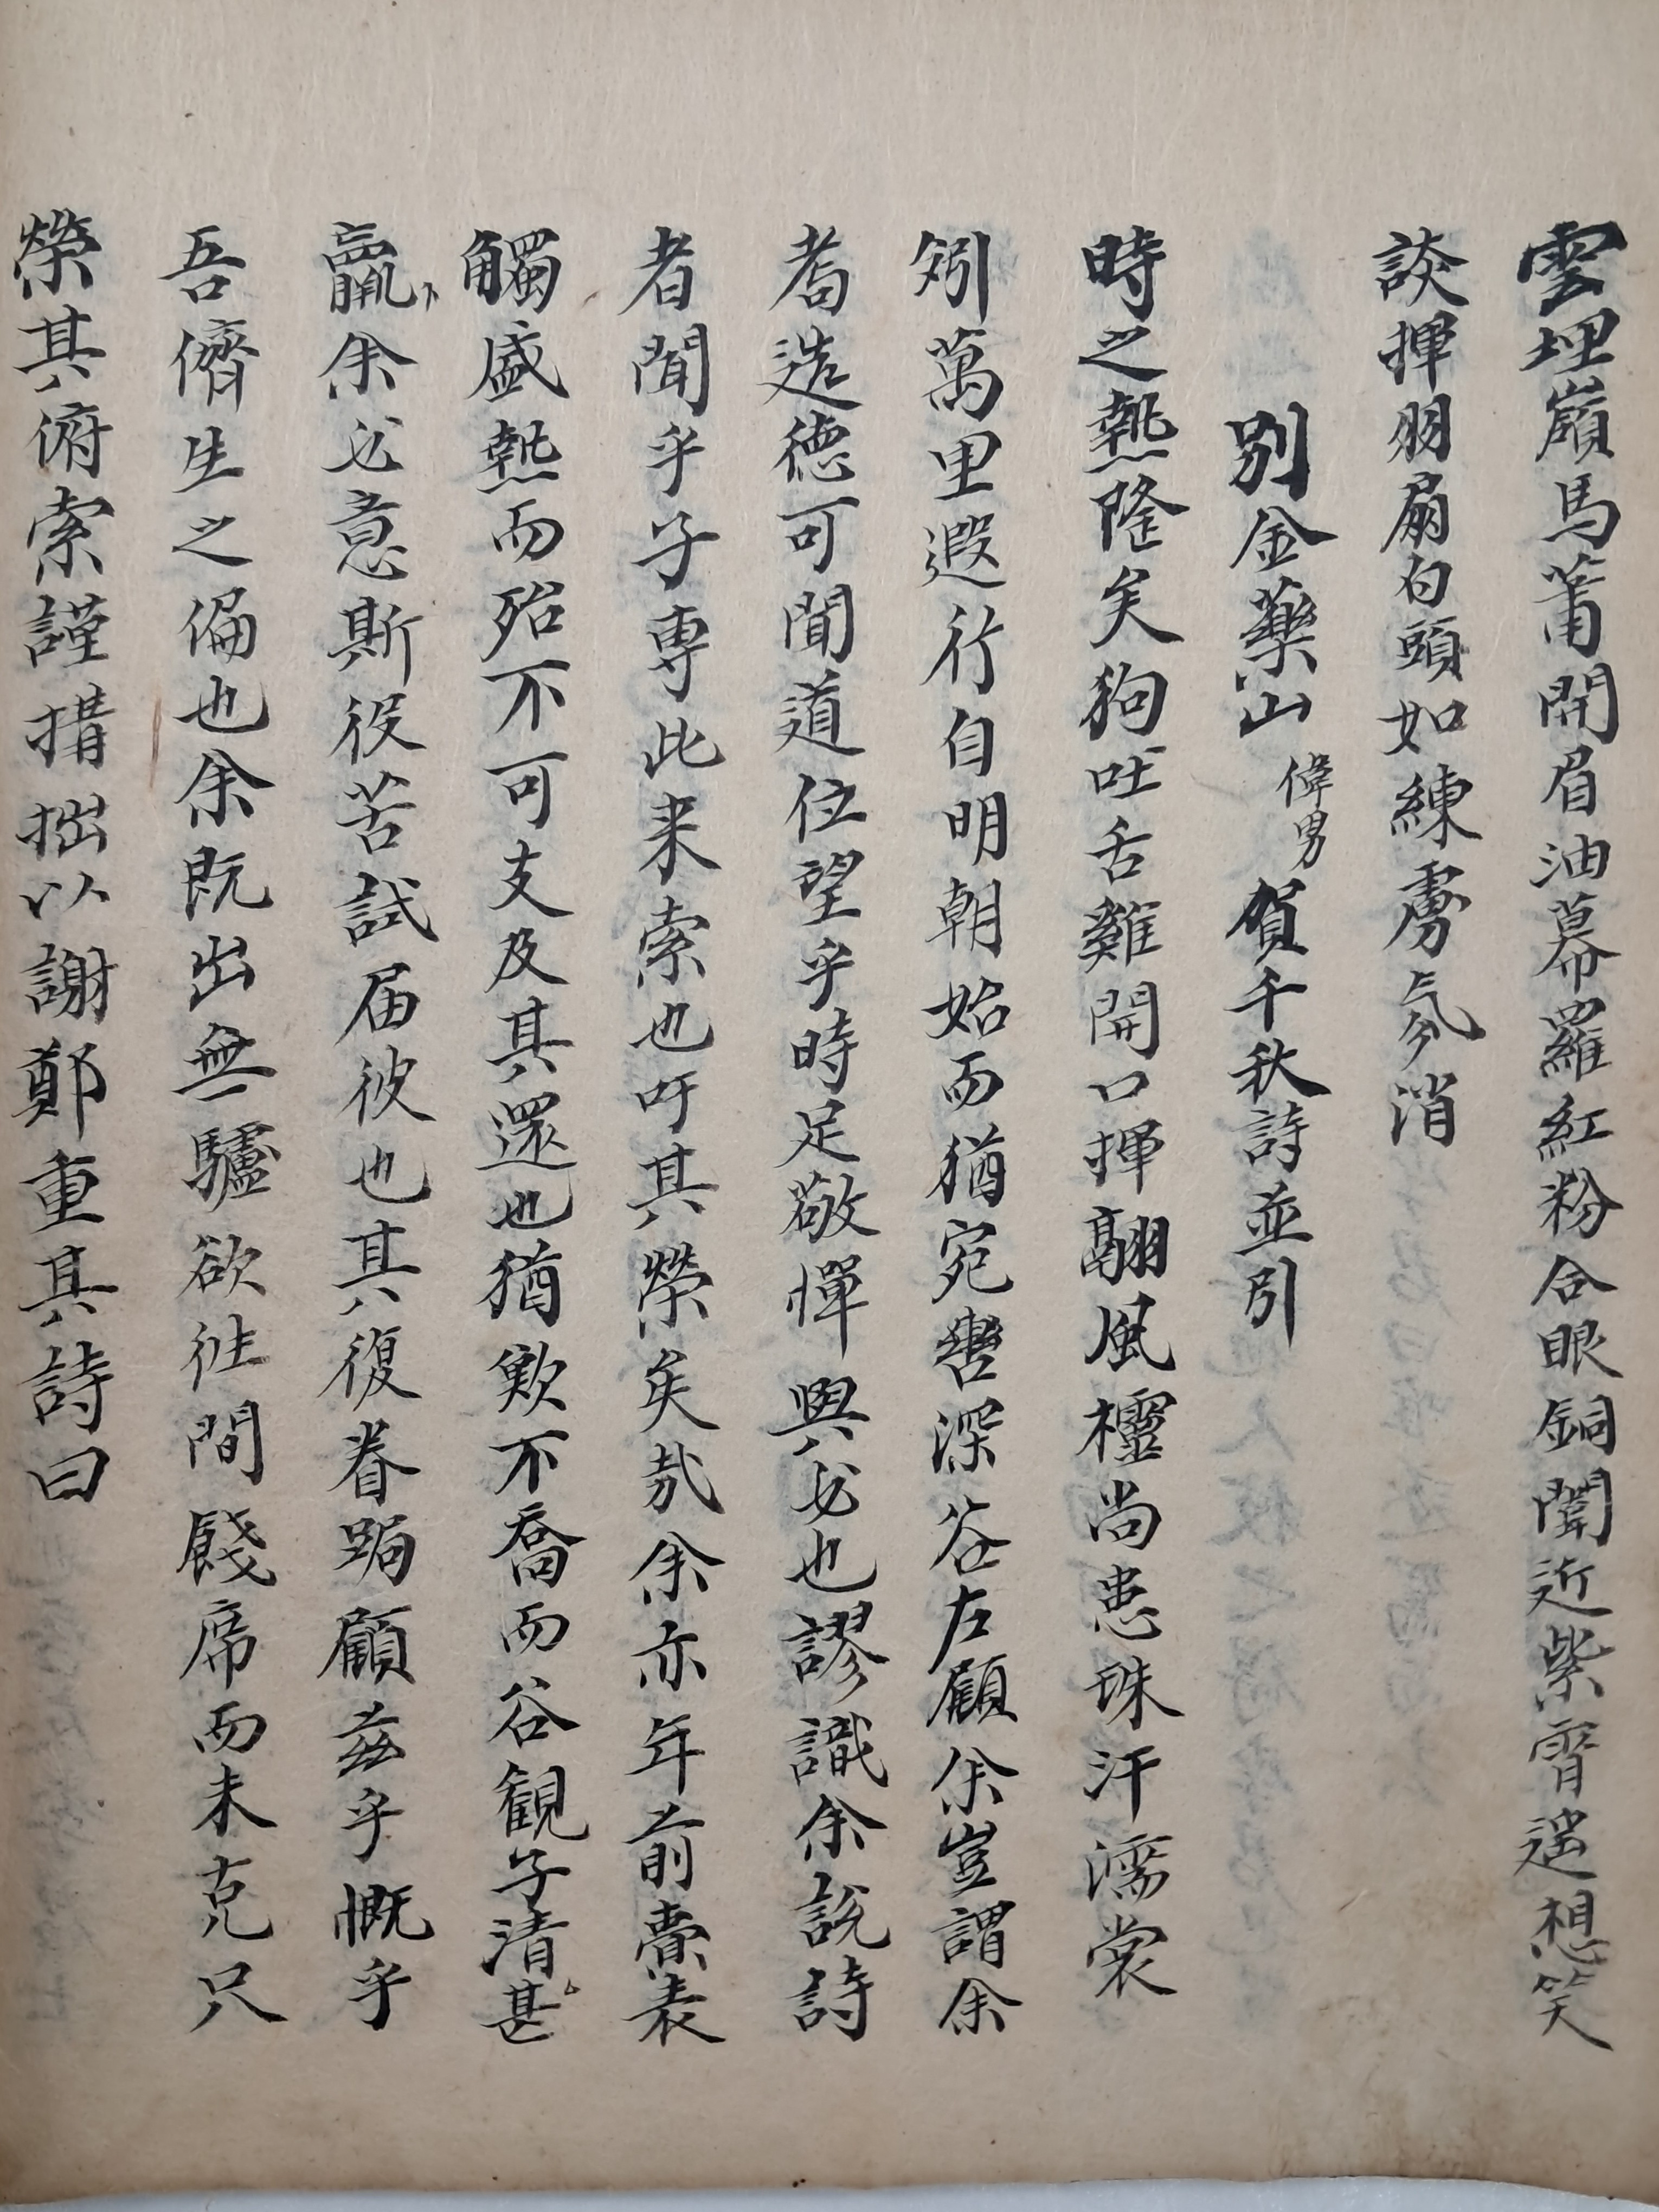 雲埋嶺馬莆開眉油幕羅紅粉合眼銅闈近紫霄遙想笑
談揮羽扇白頭如練虜氛消
別金藥山偉男賀千秋詩並引
時之熱隆矣狗吐舌雞開口揮翮風櫺尚患珠汗濡裳
矧萬里遐行自明朝始而猶宛轡深谷左顧余豈謂余
耆造德可聞道位望乎時足敬憚與必也謬識余說詩
者聞乎子専此来索也吁其榮矣哉余亦年前賫表
觸盛熱而殆不可支及其還也猶歎不喬而谷観子清甚
羸余必意斯役苦試届彼也其復眷跼顧茲乎慨乎
吾儕生之偏也余既出無驢欲徃間餞席而未克只
榮其俯索謹措拙以謝鄭重其詩曰